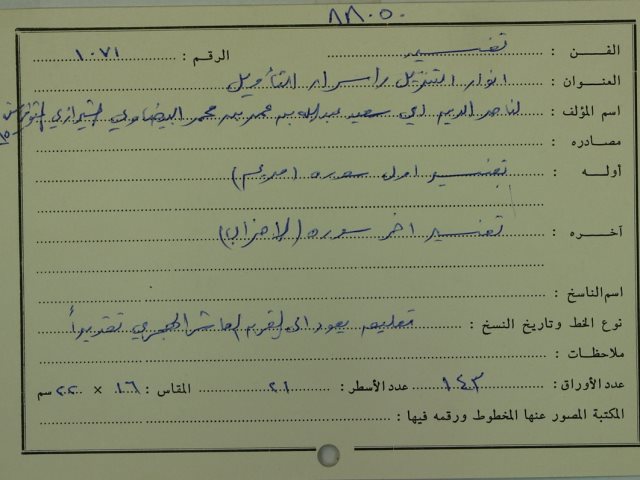 ٨٨٠٥٠
الفــن : تفسير الرقم : ١٠٧١
العنـوان : انوار التنزيل واسرار التأويل
اسم المؤلف : لناصر الدين ابي سعيد عبدالله بن عمر بن محمد البيضاوي الشيرازي المتوفى
مصـادره :
أولـــه : تفسير اول سورة (مريم)
آخـــره : تفسير اخر سورة (الاحزاب)
اسم الناسخ :
نوع الخط وتاريخ النسخ : تعليق يعود الى القرن العاشر الهجري تقديراً
ملاحظـات :
عدد الأوراق : ١٤٣ عدد الأسطر : ٢١ المقاس : ١٦ × ٢٢ سم
المكتبة المصور عنها المخطوط ورقمه فيها :